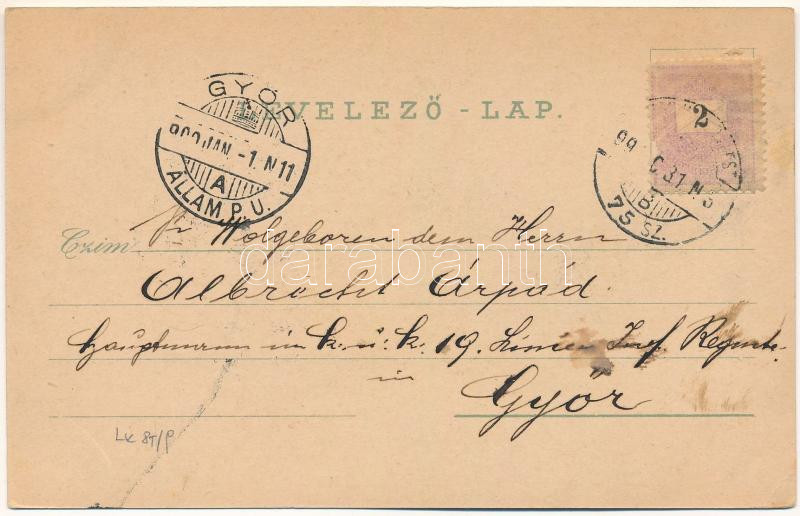 LEVELEZŐ - LAP.
GYŐR
900 JAN. -1. N 11
A
ÁLLAM P. U.
2
99 C 31 N
B
75 SZ.
Czim
Wolgeboren dem Herrn
Albrecht Árpád
Hauptmann im k. u. k. 19. Linien Inf. Regmte.
in
Győr
LK 8T/P
darabanth